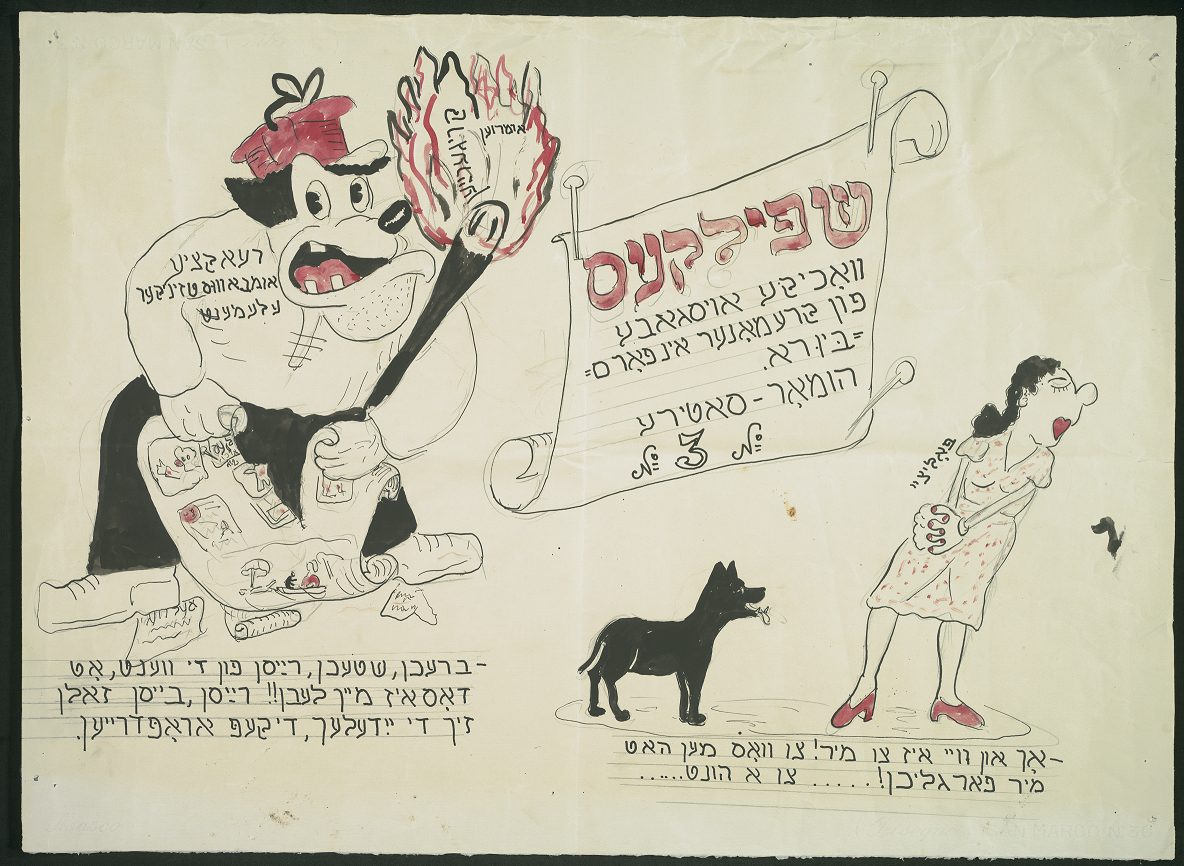 שפילקעס
וואָכיקע אויסגאבע
פון קרעמאָנער אינפאָרם=
=ביוראָ.
הומאָר-סאטירע
№ 3 №
רעאקציע
אומבאוווּסטזיניקער
עלעמענט
אומרוען
פּאָליציי
-ברעכן, שטעכן, רײַסן פון די ווענט, אָט
דאָס איז מײַן לעבן!! רײַסן, בײַסן זאָלן
זיך די ייִדעלעך, די קעפּ אראָפּדרייען.
-אָך און וויי איז צו מיר! צו וואָס מען האט
מיר פארגליכן!...... צו א הונט......